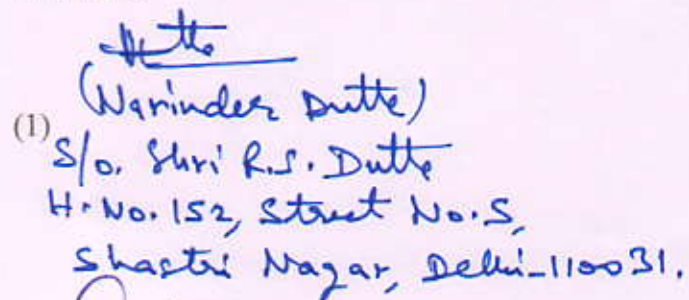 Dutta
(Narinder Dutta)
(1)
S/o. Shri R.S. Dutta
H. No. 152, Street No. 5,
Shastri Nagar, Delhi-110031.